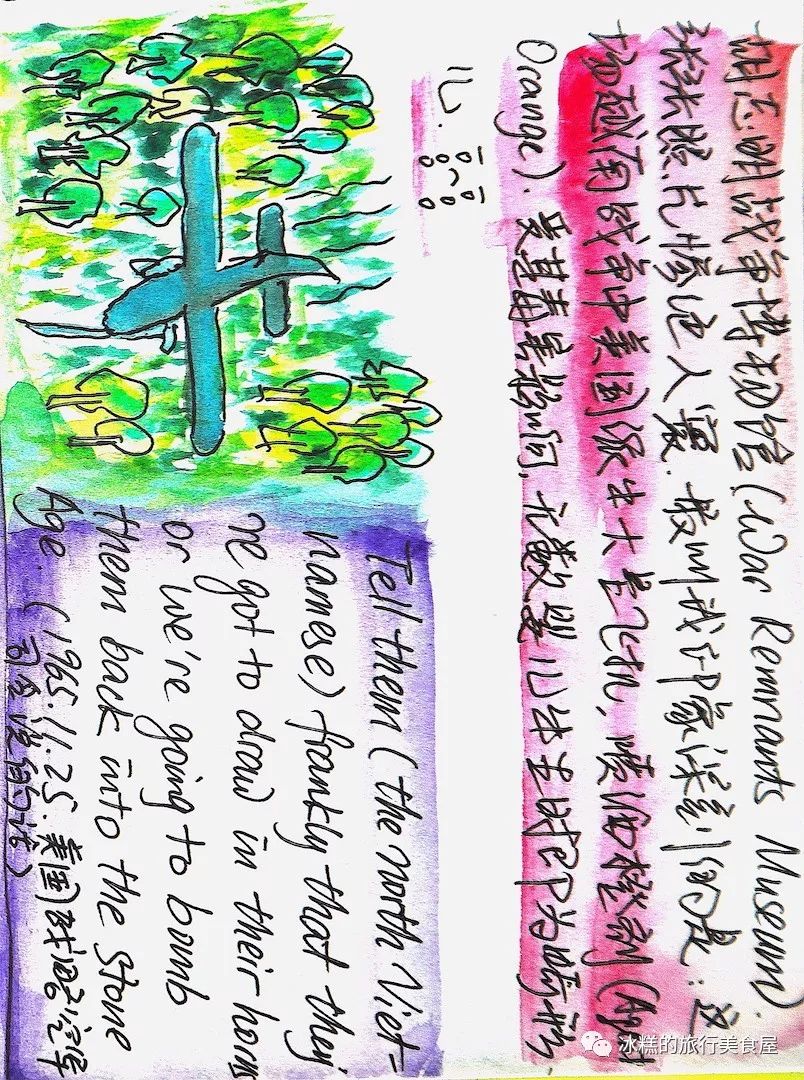 胡志明战争博物馆(War Remnants Museum).
张张照片惨绝人寰. 最叫我印象深刻的是:这
场越南战争中美国派出大量飞机, 喷洒橙剂(Agent
Orange). 受其毒素影响, 无数婴儿出生时即为畸形
儿.
Tell them (the north Viet-
namese) frankly that they
've got to draw in their horns
or we're going to bomb
them back into the Stone
Age. (1965.11.25. 美国战略空军
司令说的话)
冰糕的旅行美食屋